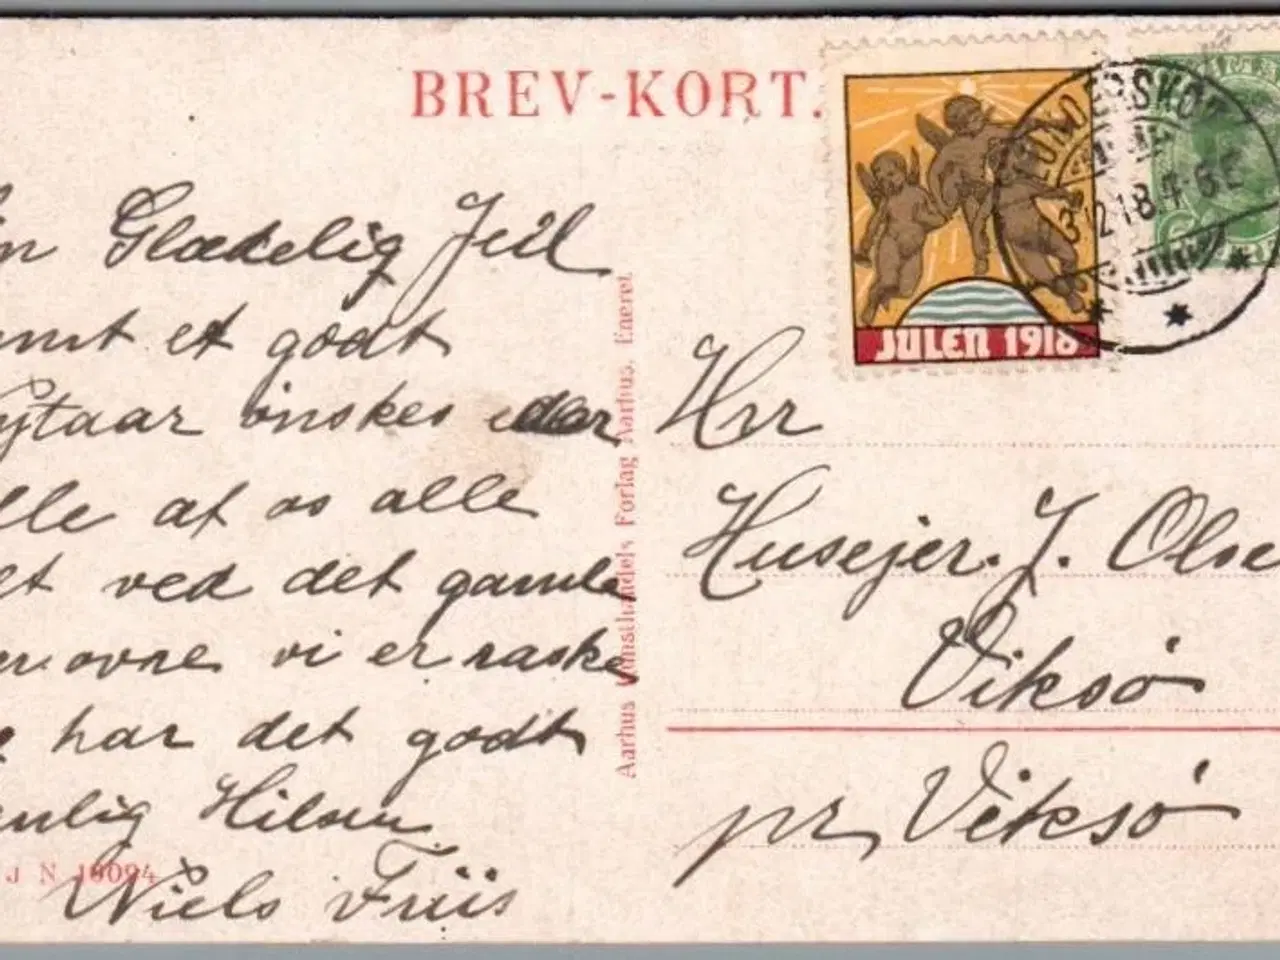 BREV-KORT.
JULEN 1918
Glædelig Jul
et godt
ønskes eder
af os alle
ved det gamle
ovre vi er raske
har det godt
Hilsen
Niels Friis
J N 18094
Aarhus Kunsthandels Forlag Aarhus. Eneret.
Hrr
Husejer. J. Olse
Viksø
pr, Viksø